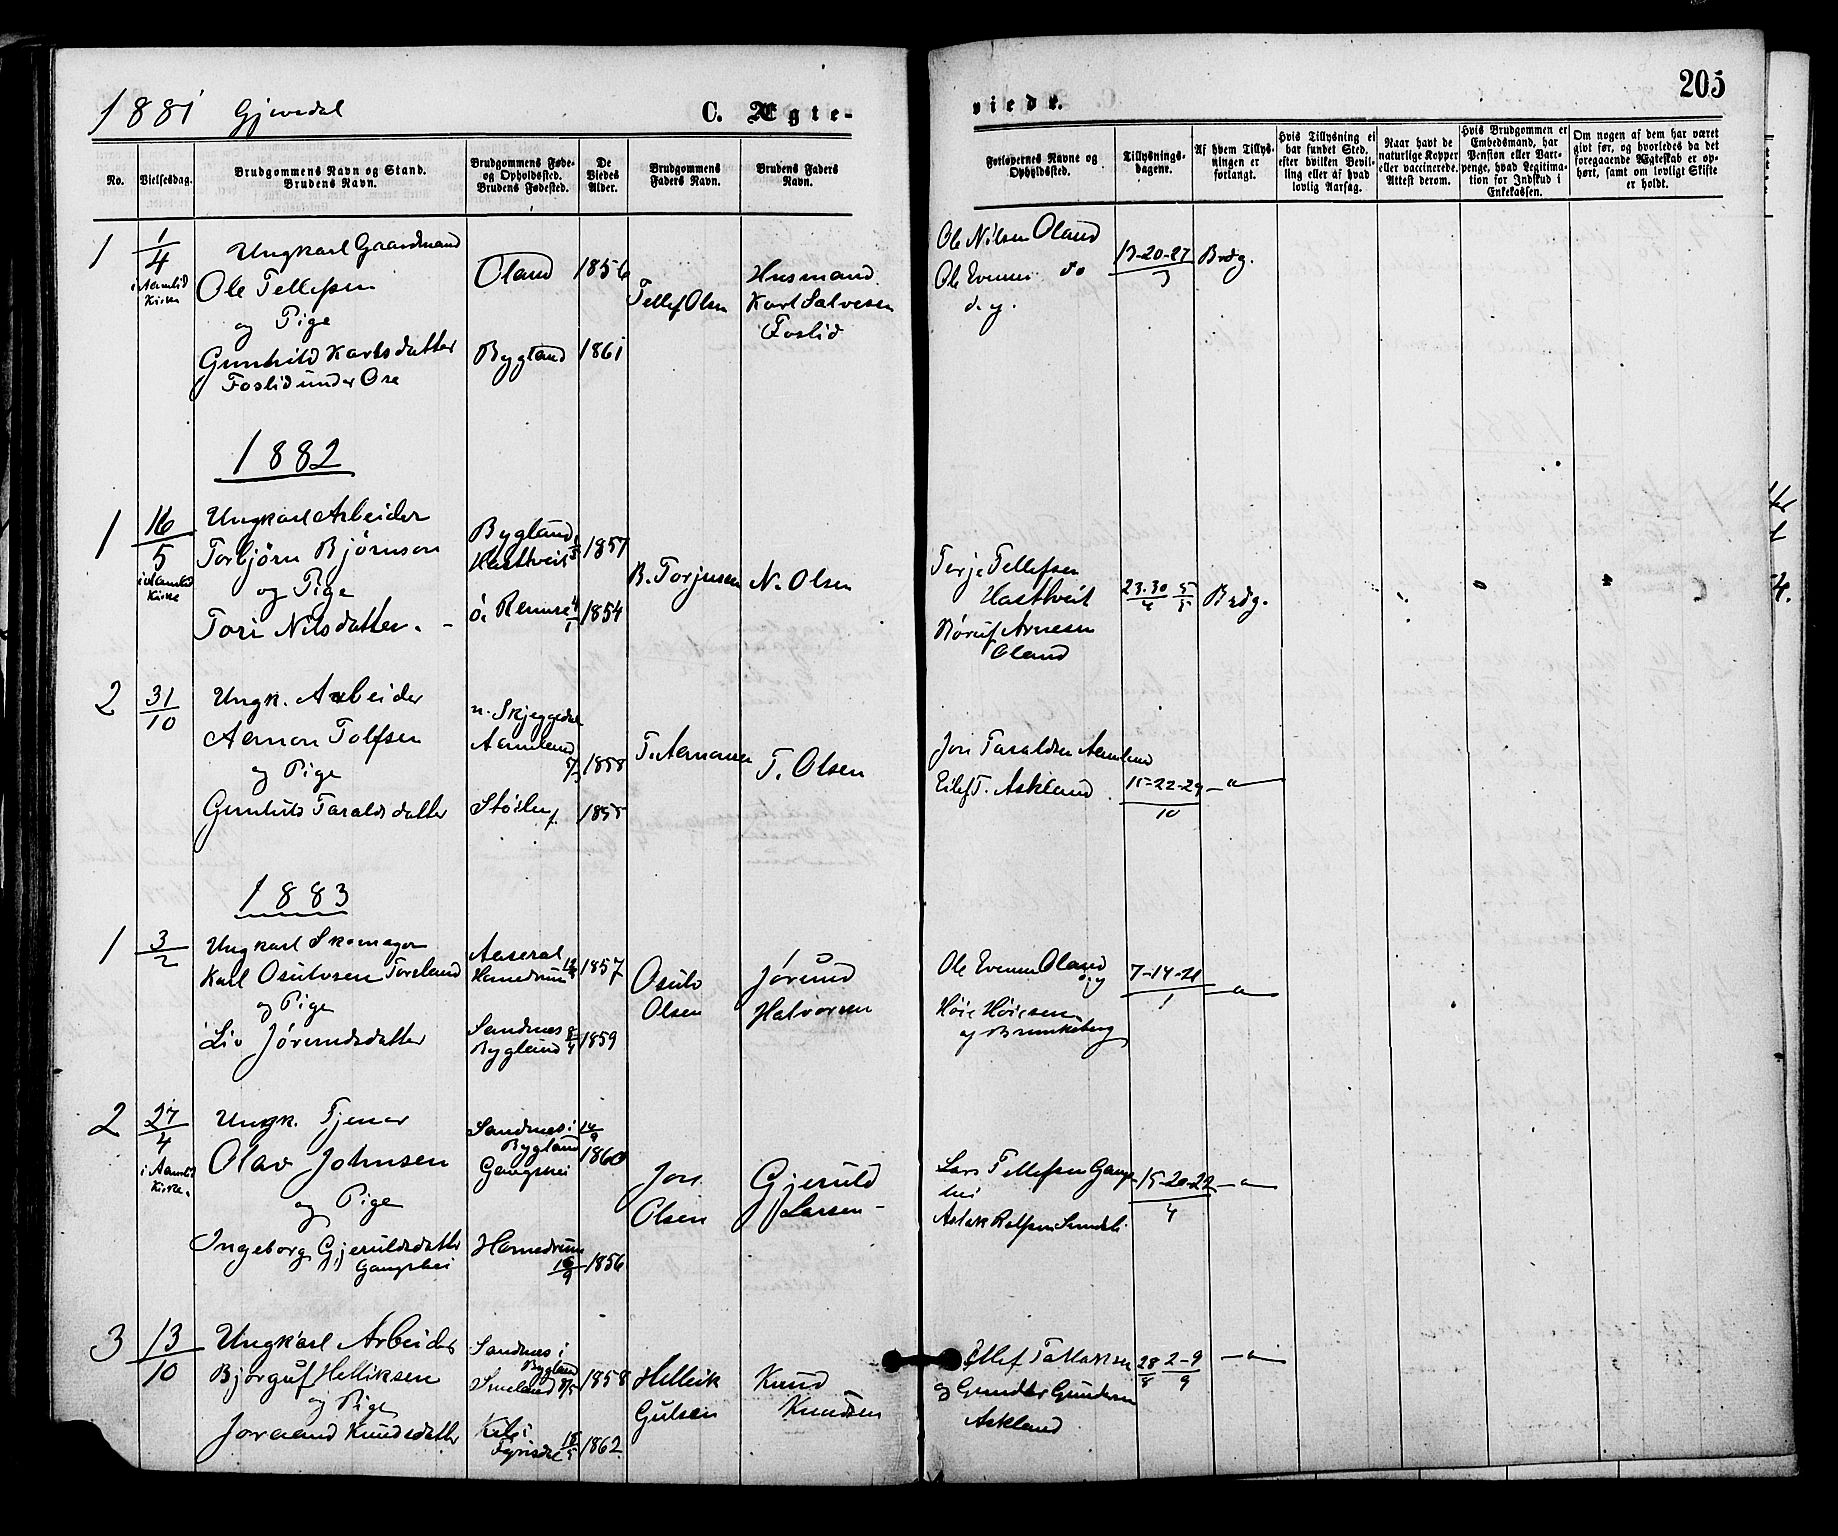 1881 Gjevedal
C. Ægte-
viede.
205
No.
Vielsesdag.
Brudgommens Navn og Stand.
Brudens Navn.
Brudgommens Føde-
og Opholdssted.
Brudens Fødested.
De
Viedes
Alder.
Brudgommens
Faders Navn.
Brudens Faders
Navn.
Forlovernes Navne og
Opholdssted.
Tillysnings-
dagene.
Af hvem Tillys-
ningen er
forlangt.
Hvis Tillysning ei
har fundet Sted,
efter hvilken Bevil-
ling eller af hvad
lovlig Aarsag.
Naar havt de
naturlige Kopper
eller vaccinerede.
Attest derom.
Hvis Brudgommen er
Embedsmand, har
Pension eller Vart-
penge, hvad Legitima-
tion for Indskud i
Enkekassen.
Om nogen af dem har været
givt før, og hvorledes da det
foregaaende Ægteskab er op-
hørt, samt om lovligt Skifte
er holdt.
1
1/4
i Aamlid
Kirke
Ungkarl Gaardmand
Ole Tellefsen
og Pige
Gunhild Karlsdatter
Foslid under Ose
Oland
Bygland
1856
1861
Tellef Olsen
Husmand
Karl Salvesen
Foslid
Ole Nilsen Oland
Ole Evensen do
d. y.
13-20-27
3
Brdg.
1882
1
16/5
i Aamlid
Kirke
Ungkarl Arbeider
Torbjörn Bjørnson
og Pige
Tori Nilsdatter
Bygland
Hasthveit
ö. Ramse 4/1
1857
1854
B. Torjusen
N. Olsen
Terje Tellefsen
Hasthveit
Røruf Arnesen
Oland
23.30/4 5/5
Brdg.
2
31/10
Ungk. Arbeider
Aamon Tolfsen
og Pige
Gunhild Taraldsdatter
n. Skjeggedal
Aamland
1858
1855
T. Aamonsen
T. Olsen
Jon Taraldsen Aamland
Eilef T. Askland
15-22-29
10
—"—
1883
1
3/2
Ungkarl Skomager
Karl Osulvsen Torsland
og Pige
Liv Jørundsdatter
Aaseral
Hamedrum
Sandnæs
Bygland
1857
1859
Osulv
Olsen
Jørund
Halvorsen
Ole Evensen Oland
og
Høie Høiesen
Brunkeberg
7-14-21
1
—"—
2
27/4
i Aamlid
Kirke.
Ungk. Tjener
Olav Johnsen
og Pige
Ingeborg Gjeruldsdatter
Gangshei
Sandnæs i
Bygland
Gangshei
Hamedrum
14/9
1860
1856
Jon
Olsen
Gjeruld
Larsen
Lars Tellefsen Gangs
hei
Aslak Rolfsen
15-20-22
4
—"—
3
13/10
Ungkarl Arbeider
Bjørguf Helliksen
og Pige
Joraand Knudsdatter
Sandnæs i
Bygland
Smeland
Kile i
Fyrisdal
1858
1862
Hellik
Gulsen
Knud
Knudsen
Ellef Tallaksen
og Gunder Gundersen
Askland
28/8 2-9/9
—"—